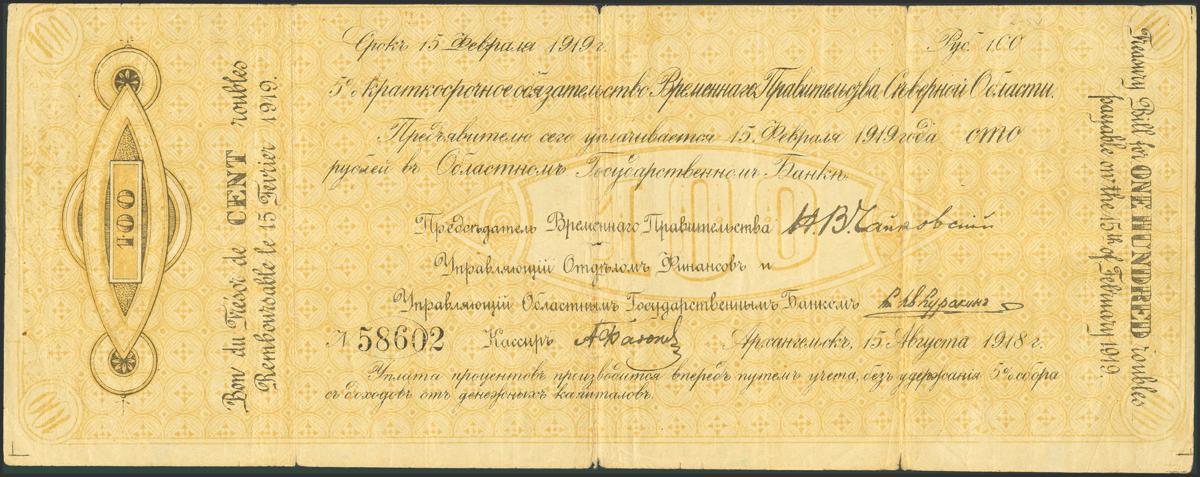 Срокъ 15 Февраля 1919 г. Руб. 100
5% краткосрочное обязательство Временнаго Правительства Сѣверной Области.
Предъявителю сего уплачивается 15 Февраля 1919 года сто
рублей въ Областномъ Государственномъ Банкѣ.
Предсѣдатель Временнаго Правительства Н. В. Чайковскій
Управляющій Отдѣломъ Финансовъ и
Управляющій Областнымъ Государственнымъ Банкомъ
№ 58602 Кассиръ Архангельскъ, 15 Августа 1918 г.
Уплата процентовъ производится впередъ путемъ учета, безъ удержанія 5% сбора
съ доходовъ отъ денежныхъ капиталовъ.
Bon du Trésor de CENT roubles
Remboursable le 15 Fevrier 1919.
Treasury Bill for ONE HUNDRED roubles
payable on the 15th of February 1919.
100
100
100
100
100
100